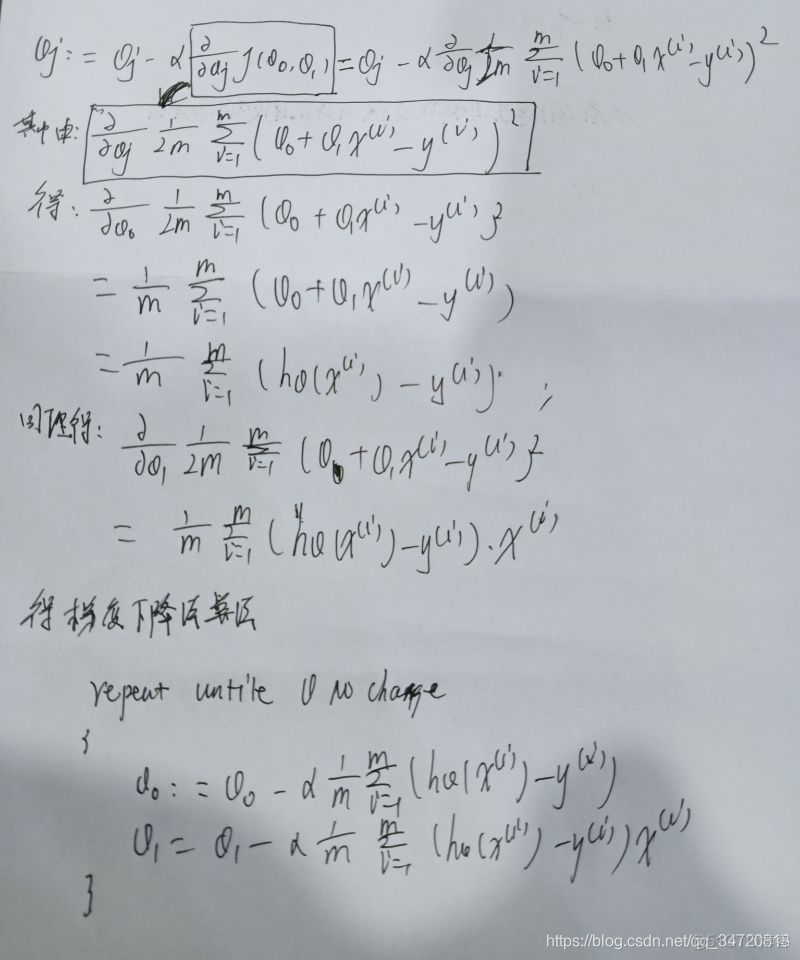 θj := θj - α ∂/∂θj J(θ0, θ1) = θj - α ∂/∂θj 1/2m Σ_{i=1}^{m} (θ0 + θ1x^(i) - y^(i))^2
其中由: ∂/∂θj 1/2m Σ_{i=1}^{m} (θ0 + θ1x^(i) - y^(i))^2
得: ∂/∂θ0 1/2m Σ_{i=1}^{m} (θ0 + θ1x^(i) - y^(i))^2
= 1/m Σ_{i=1}^{m} (θ0 + θ1x^(i) - y^(i))
= 1/m Σ_{i=1}^{m} (hθ(x^(i)) - y^(i)) ;
同理得: ∂/∂θ1 1/2m Σ_{i=1}^{m} (θ0 + θ1x^(i) - y^(i))^2
= 1/m Σ_{i=1}^{m} (hθ(x^(i)) - y^(i)) · x^(i)
得梯度下降法算法
repeat untile θ no change
{
θ0 := θ0 - α 1/m Σ_{i=1}^{m} (hθ(x^(i)) - y^(i))
θ1 = θ1 - α 1/m Σ_{i=1}^{m} (hθ(x^(i)) - y^(i)) x^(i)
}
https://blog.csdn.net/qq_34720818